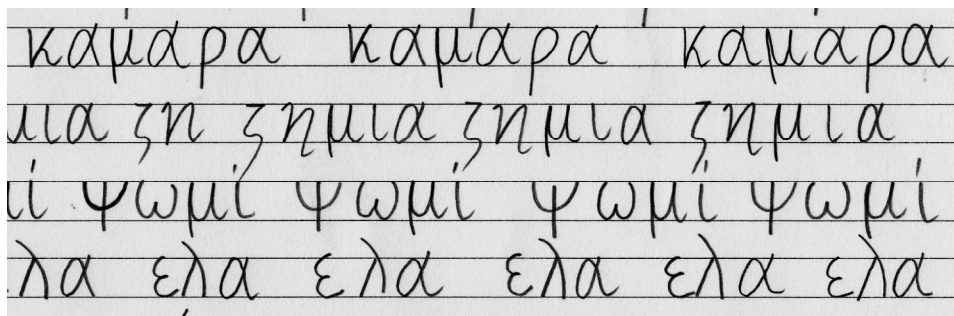 καμάρα καμάρα καμάρα
μια ζη ζημια ζημια ζημια
μί ψωμί ψωμί ψωμί ψωμί
λα ελα ελα ελα ελα ελα